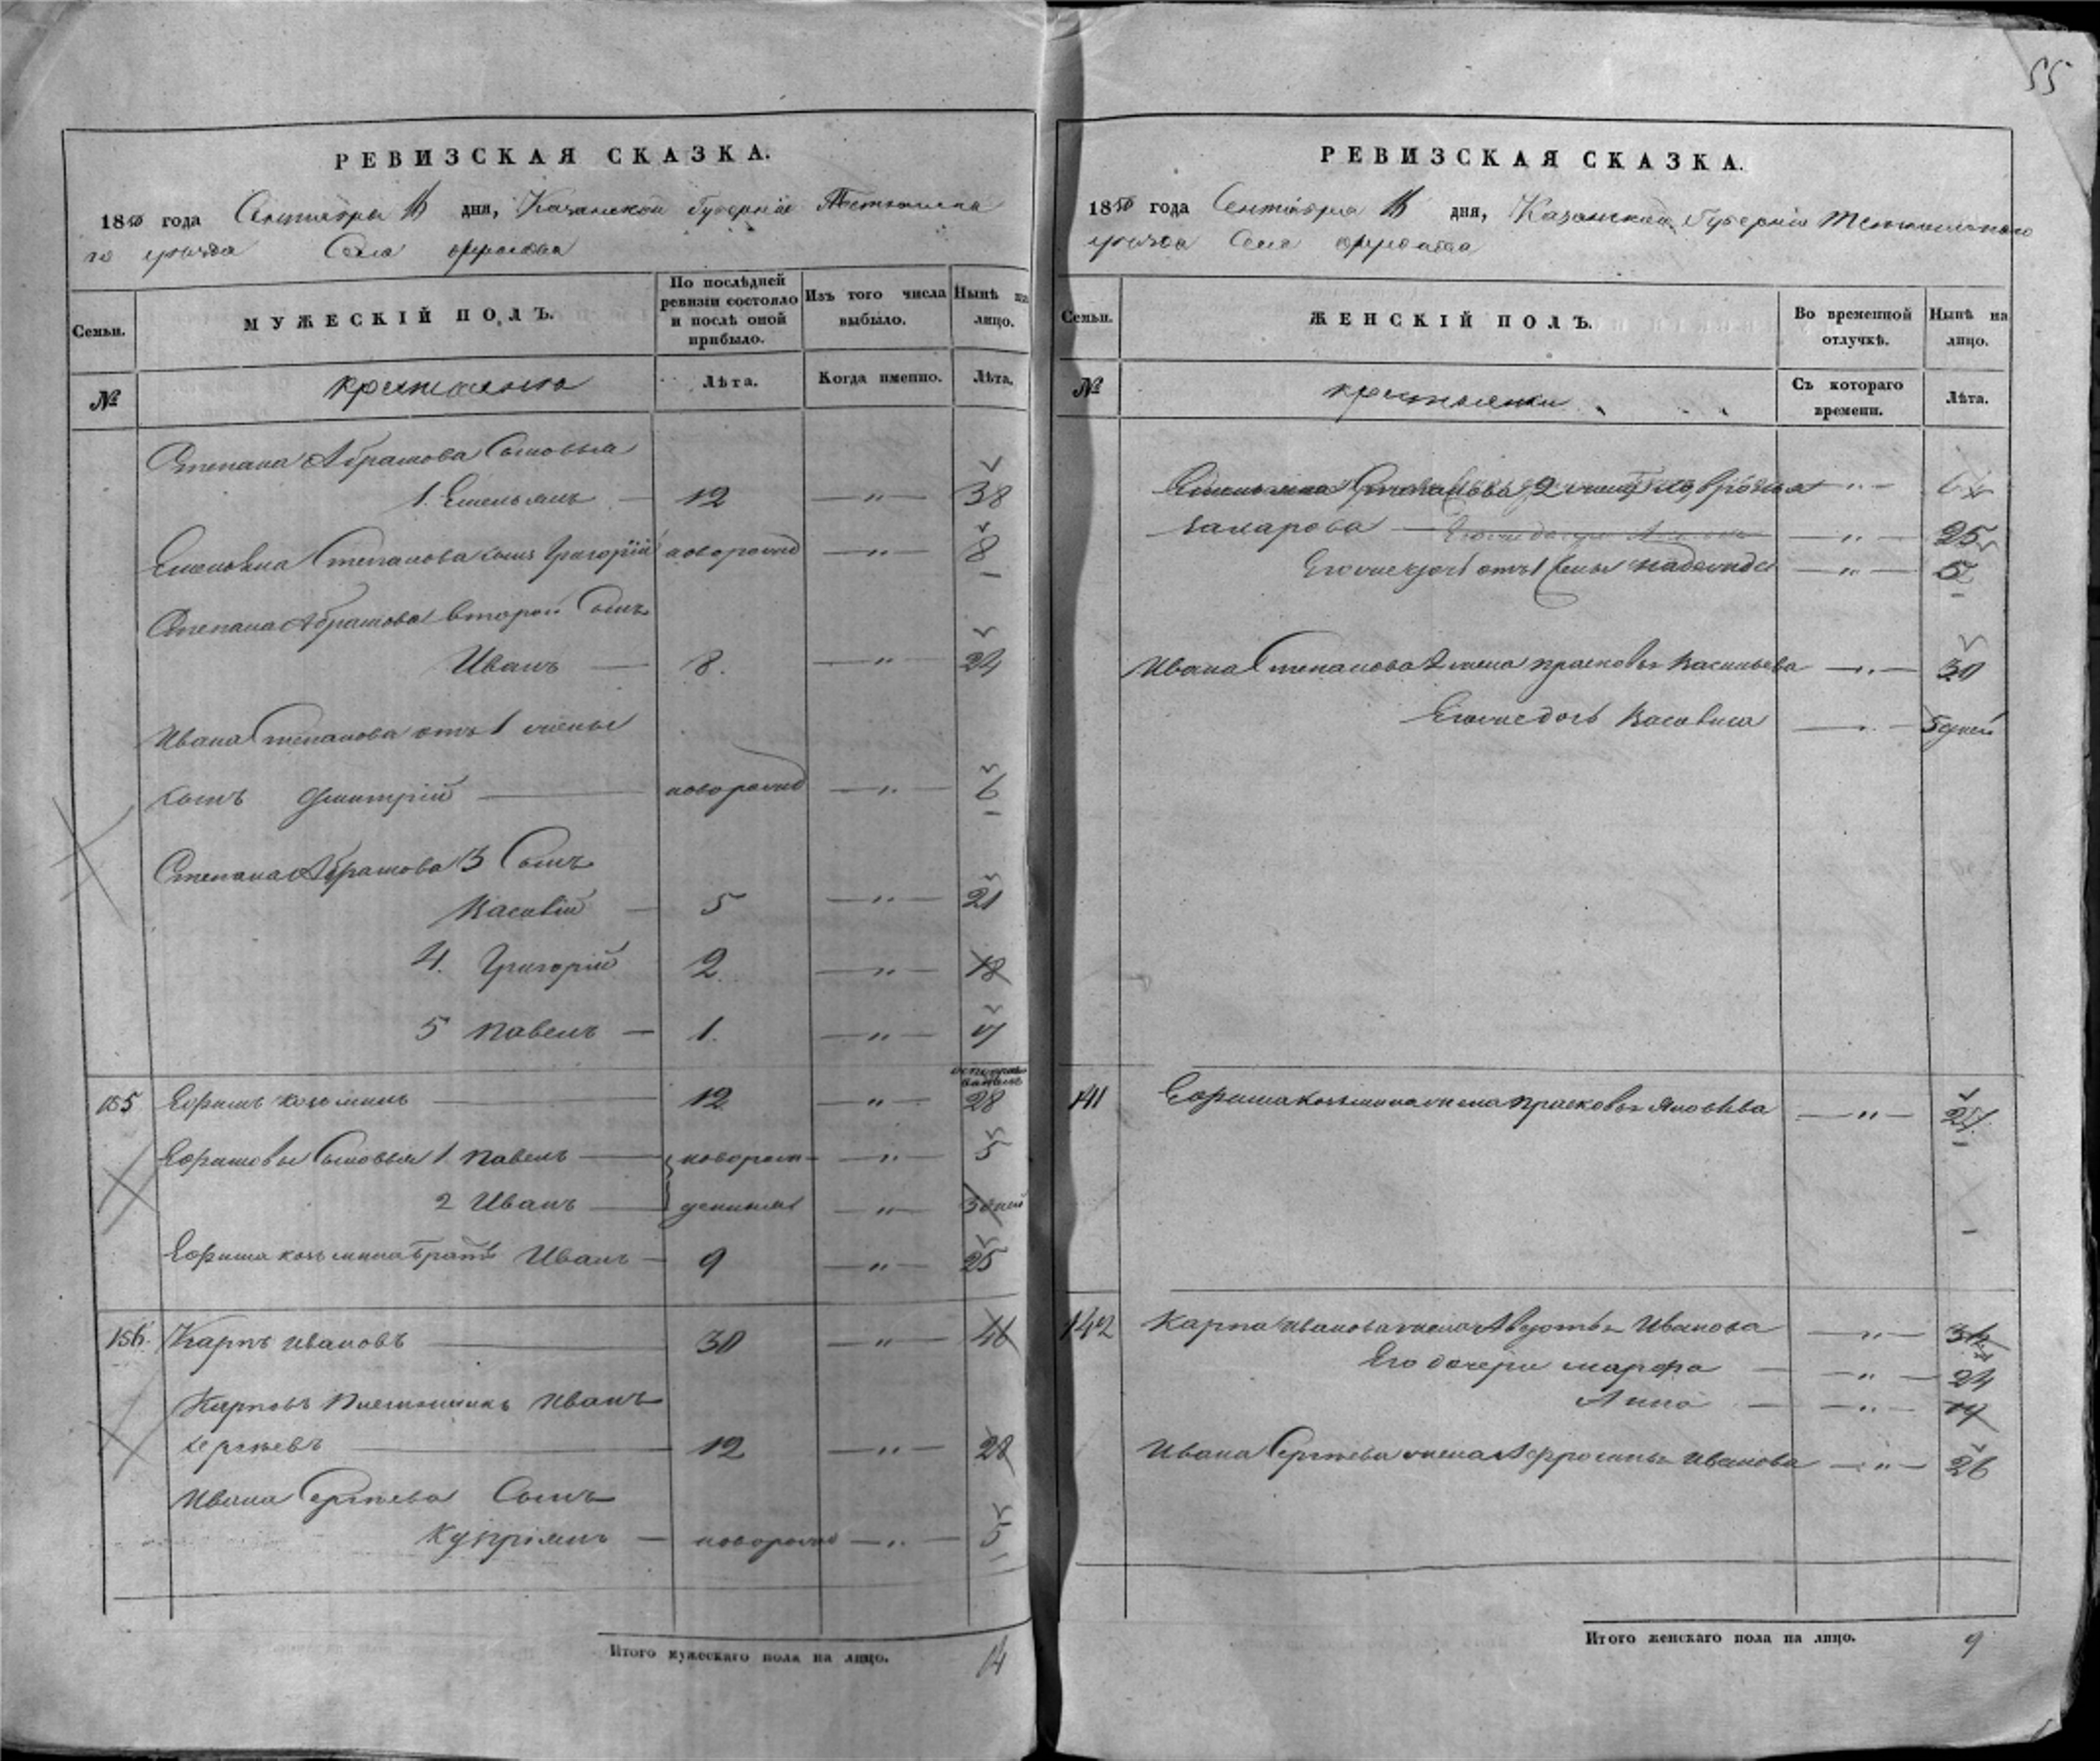 55
РЕВИЗСКАЯ СКАЗКА.
1850 года Сентября дня, Казанской Губернiи Тетюшска
го уѣзда Села
Семьи.
МУЖЕСКІЙ ПОЛЪ.
По послѣдней ревизіи состояло и послѣ оной прибыло.
Изъ того числа выбыло.
Нынѣ на лицо.
№
крестьяне
Лѣта.
Когда именно.
Лѣта.
Степана Абрамова Сыновья
1. Емельянъ — 12 — „ — 38
Емельяна Степанова сынъ Григорiй новорожд — „ — 8
Степана Абрамова второй Сынъ
Иванъ — 8. — „ — 24
Ивана Степанова отъ 1 жены
сынъ Дмитрій — новорожд — „ — 6
Степана Абрамова 3 Сынъ
Васи­лій — 5 — „ — 21
4. Григорій 2. — „ — 18
5 Павелъ — 1. — „ — 17
155 Ефимъ Козьминъ — 12 — „ — 28
Ефимовы Сыновья 1 Павелъ — новорож — „ — 5
2 Иванъ — денные — „ — 3 дней
Ефима Козьмина братъ Иванъ — 9 — „ — 25
156. Карпъ Ивановъ — 30 — „ — 46
Карповъ Племянникъ Иванъ
Сергѣевъ — 12 — „ — 28
Ивана Сергѣева Сынъ
Купріянъ — новорожд — „ — 5
Итого мужескаго пола на лицо. 14
РЕВИЗСКАЯ СКАЗКА.
1850 года Сентября дня, Казанской Губерніи Тетюшскаго
уѣзда Села
Семьи.
ЖЕНСКІЙ ПОЛЪ.
Во временной отлучкѣ.
Нынѣ на лицо.
№
крестьянки
Съ котораго времени.
Лѣта.
Емельяна Степанова 2 жена — „ —
Захарова — „ — 25
Его же дочь отъ 1 жены Надежда — „ — 5
Ивана Степанова 2 жена Прасковья Васильева — „ — 30
Его же дочь Васи­лиса — „ — 5 дней
141 Ефима Козьмина жена Прасковья Яковлева — „ — 27.
142 Карпа Иванова жена Авдотья Иванова — „ —
Его дочери Марфа — „ — 24
Анна — „ — 17
Ивана Сергѣева жена Афросинья Иванова — „ — 26
Итого женскаго пола на лицо. 9